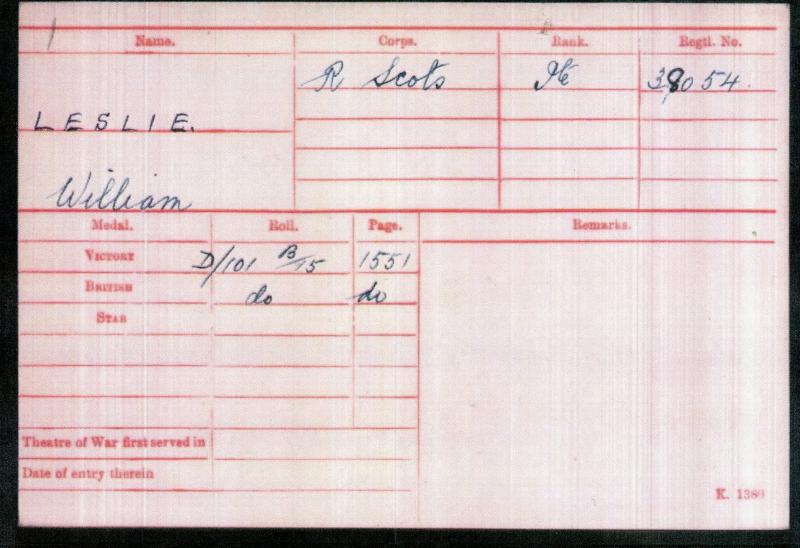 Name. Corps. Rank. Regtl. No.
R Scots Pte
LESLIE.
William
Medal. Roll. Page. Remarks.
VICTORY D/101 B/15 1551
BRITISH do do
STAR
Theatre of War first served in
Date of entry therein
K. 1380